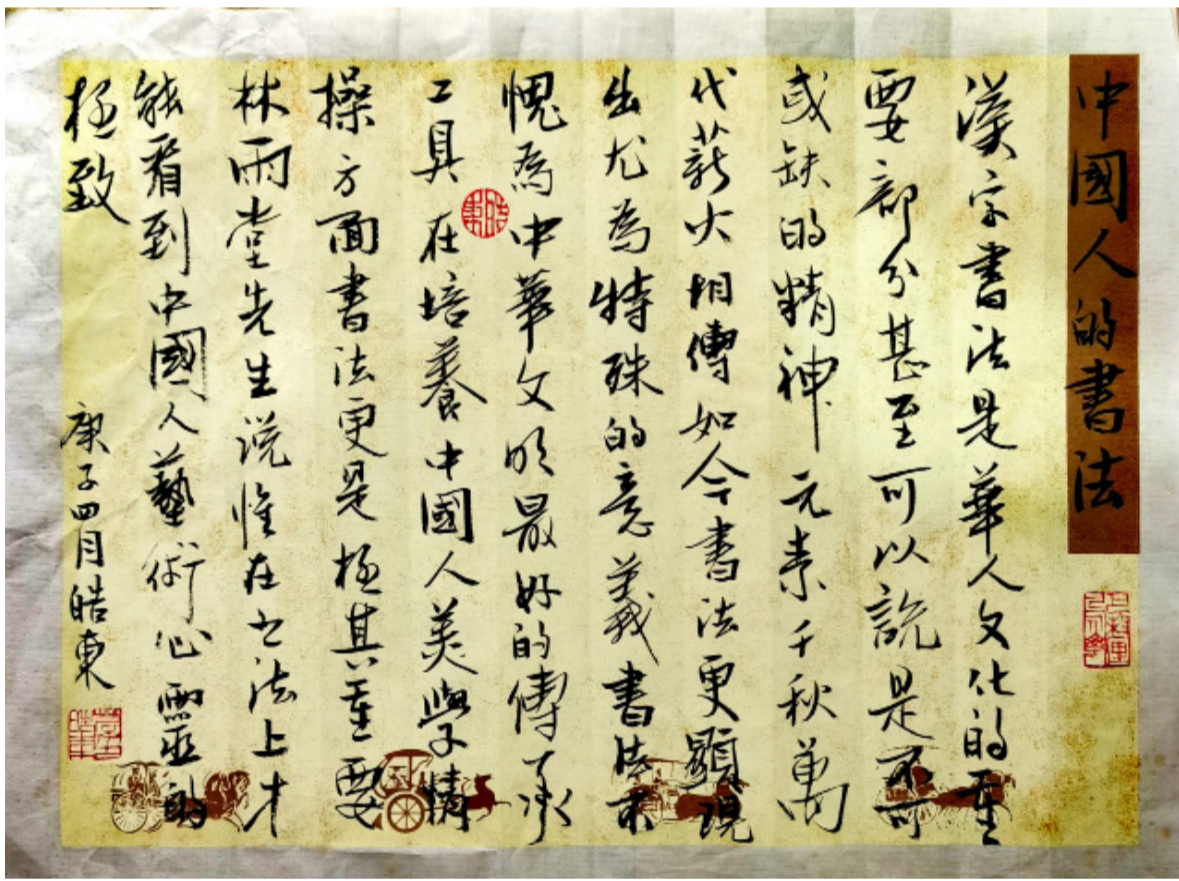 中國人的書法
漢字書法是華人文化的重
要部分甚至可以說是不可
或缺的精神元素千秋萬
代薪火相傳如今書法更顯現
出尤為特殊的意義書法不
愧為中華文明最好的傳承
工具在培養中國人美學情
操方面書法更是極其重要
林雨堂先生说惟在书法上才
能看到中國人藝術心靈的
極致
庚子四月皓東